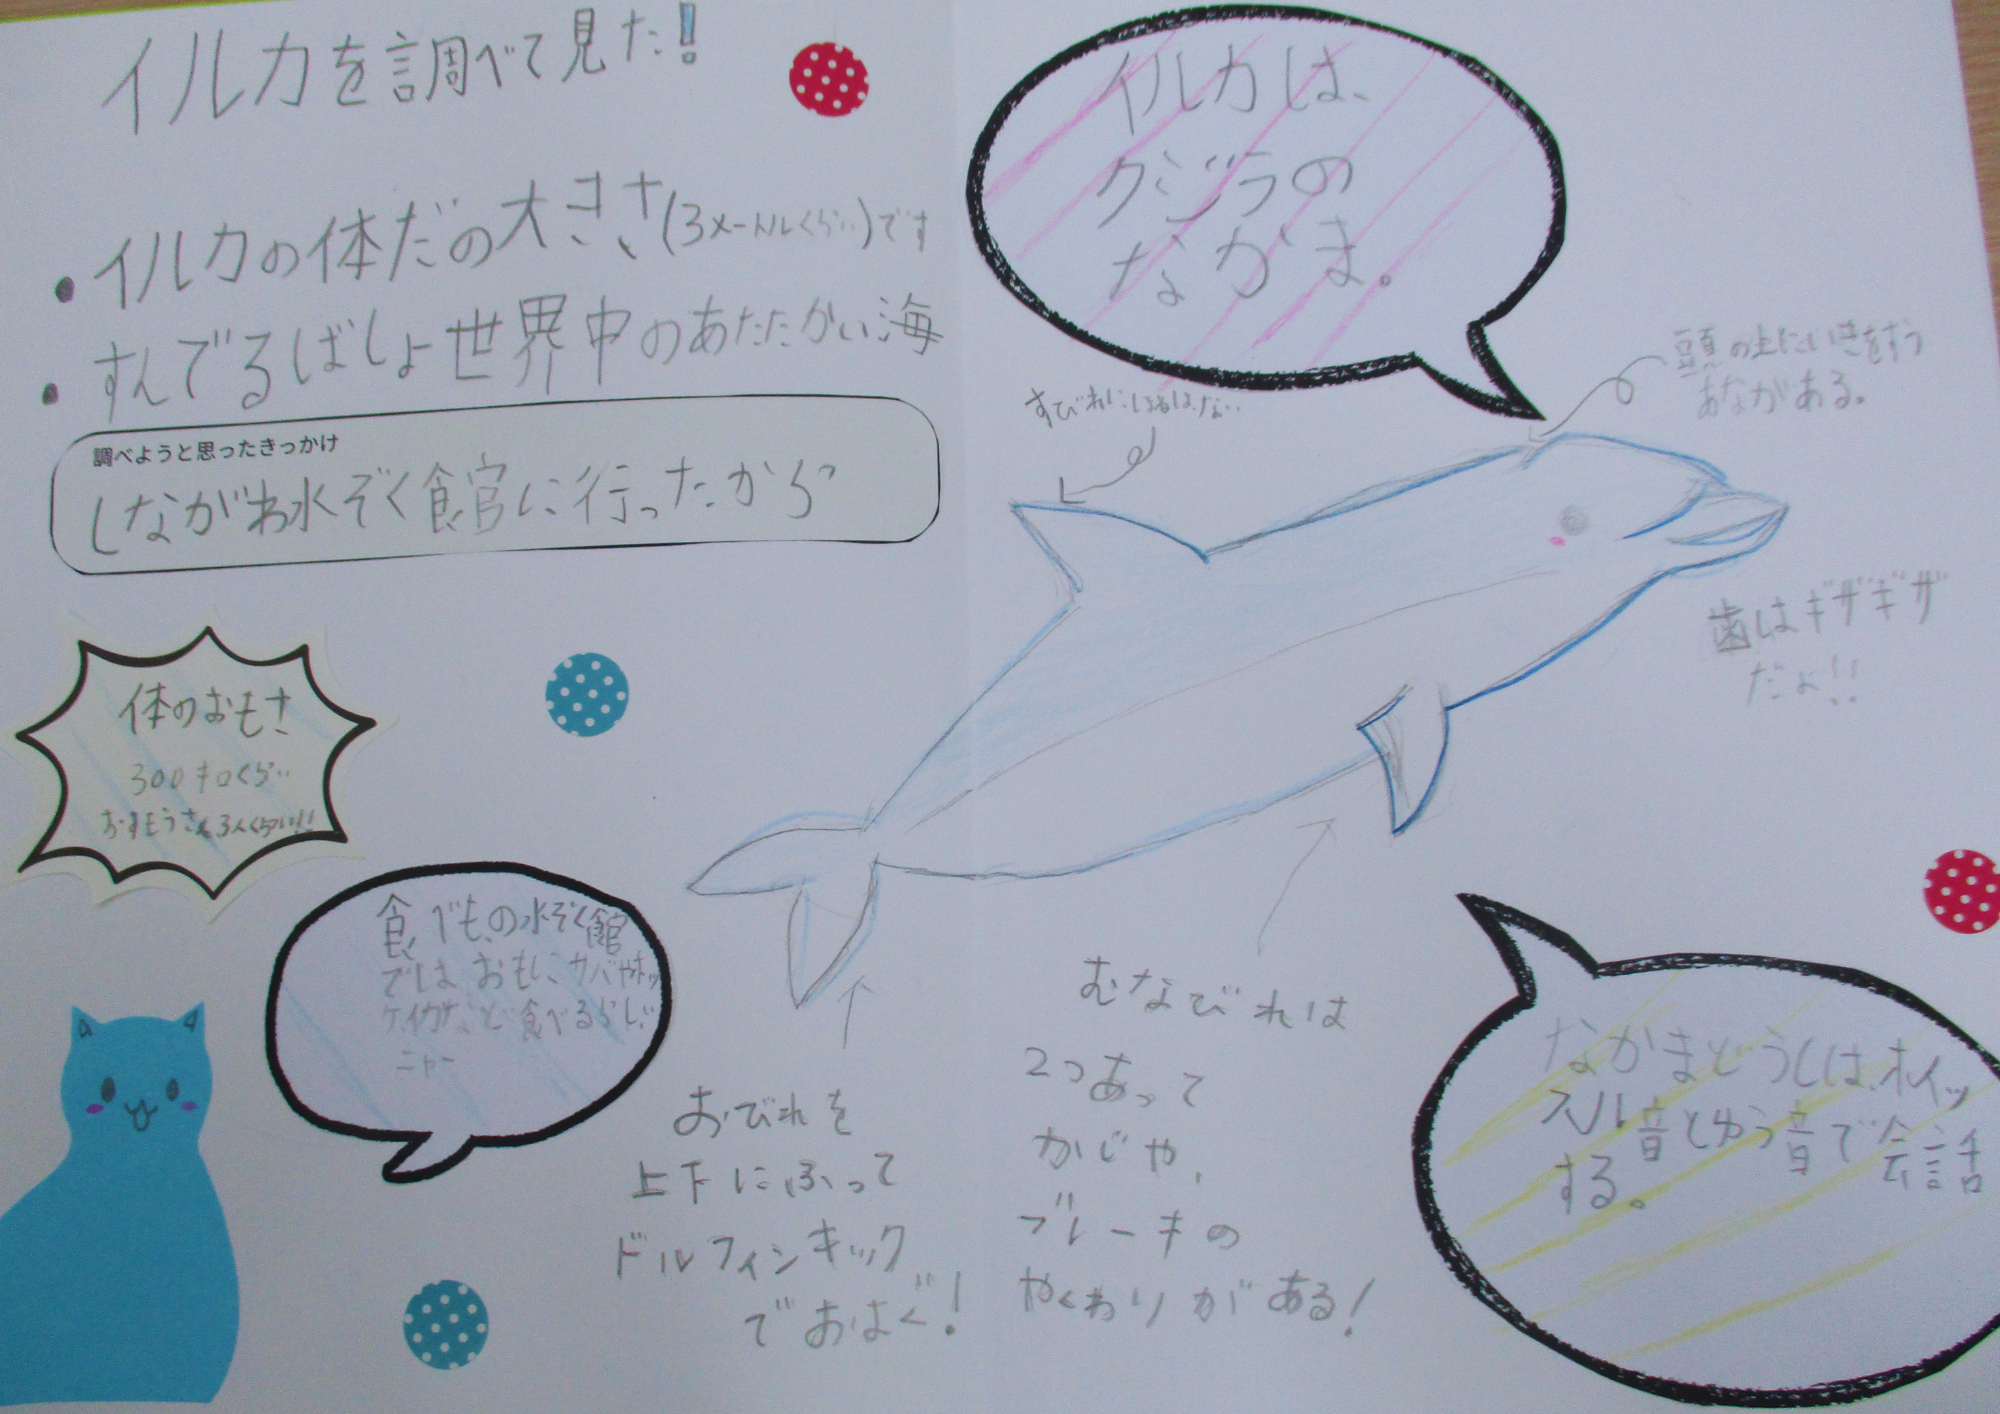 イルカを調べて見た!
・イルカの体だの大きさ(3メートルくらい)です
・すんでるばしょ世界中のあたたかい海
調べようと思ったきっかけ
しながわ水ぞく館に行ったから
体のおもさ
300キロくらい
おすもうさん3人くらい!!
食べもの水ぞく館
ではおもにサバやホッ
ケイカなど食べるらしい
ニャー
イルカは、
クジラの
なかま。
頭の上にいきをすう
あながある。
せびれにほねはない
歯はギザギザ
だよ!!
おびれを
上下にふって
ドルフィンキック
でおよぐ!
むなびれは
2つあって
かじや、
ブレーキの
やくわりがある!
なかまどうしは、ホイッ
スル音とゆう音で会話
する。